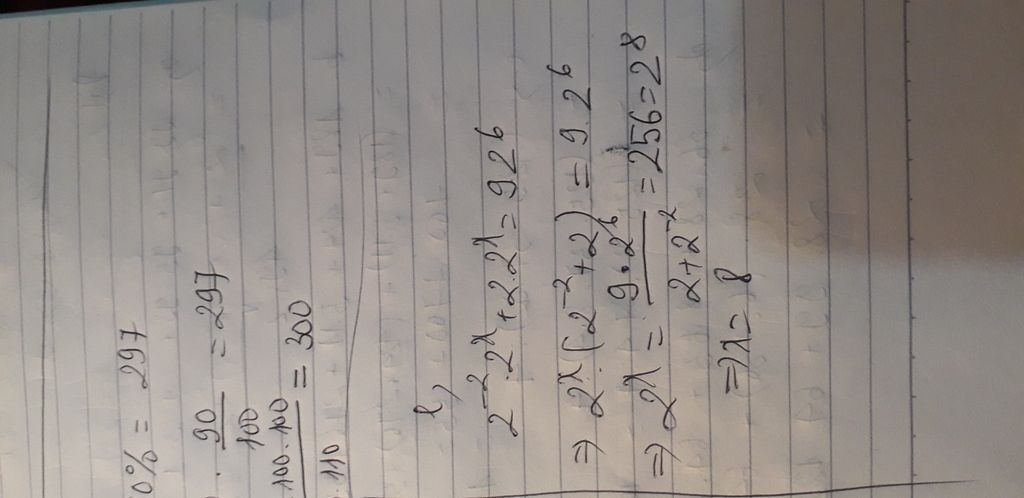 0% = 297
. 90/100 = 297
100.100/.110 = 300
l,
2⁻².2^λ + 2.2^λ = 926
⇒ 2^λ.(2⁻² + 2) = 9.2⁶
⇒ 2^λ = 9.2⁶/2+2⁻² = 256 = 2⁸
⇒ λ = 8